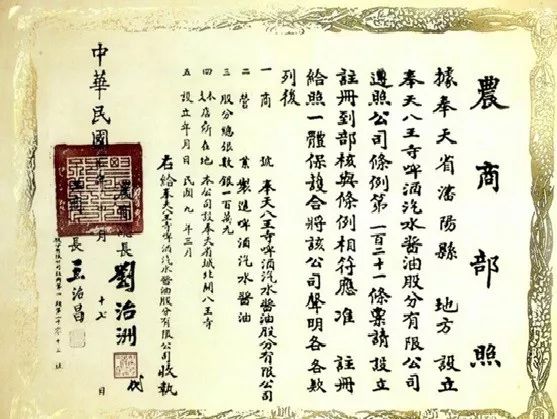 農商部照
據奉天省瀋陽縣 地方 設立
奉天八王寺啤酒汽水醬油股分有限公司
遵照公司條例第一百二十一條禀請設立
註冊到部核與條例相符應准 註冊
給照一體保護合將該公司聲明各各欵
列後
一 商 號 奉天八王寺啤酒汽水醬油股分有限公司
二 營 業 製造啤酒汽水醬油
三 股分總張數 銀一百萬元
四 本店支店所在地 本公司設奉天省城北關八王寺
五 設立年月日 民國九年三月
右給奉天八王寺啤酒汽水醬油股分有限公司收執
農商總長 劉治洲 代
長 王治昌
中華民國 年 月 十七 日